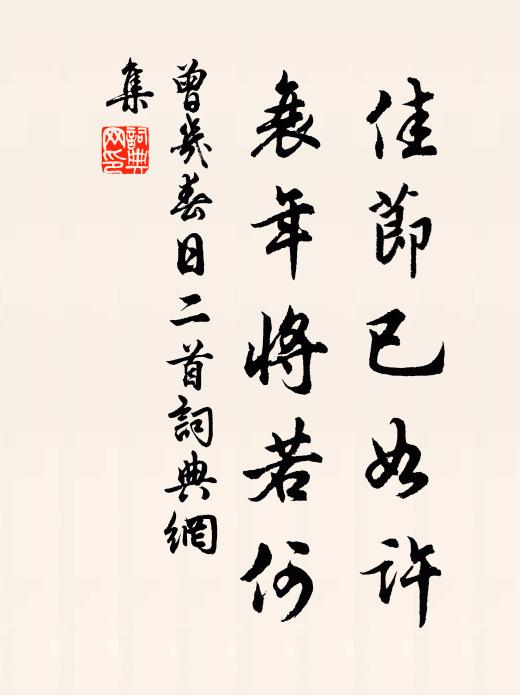 佳節已如許
衰年將若何
曾幾春日二首詞典網
集
詞典網印